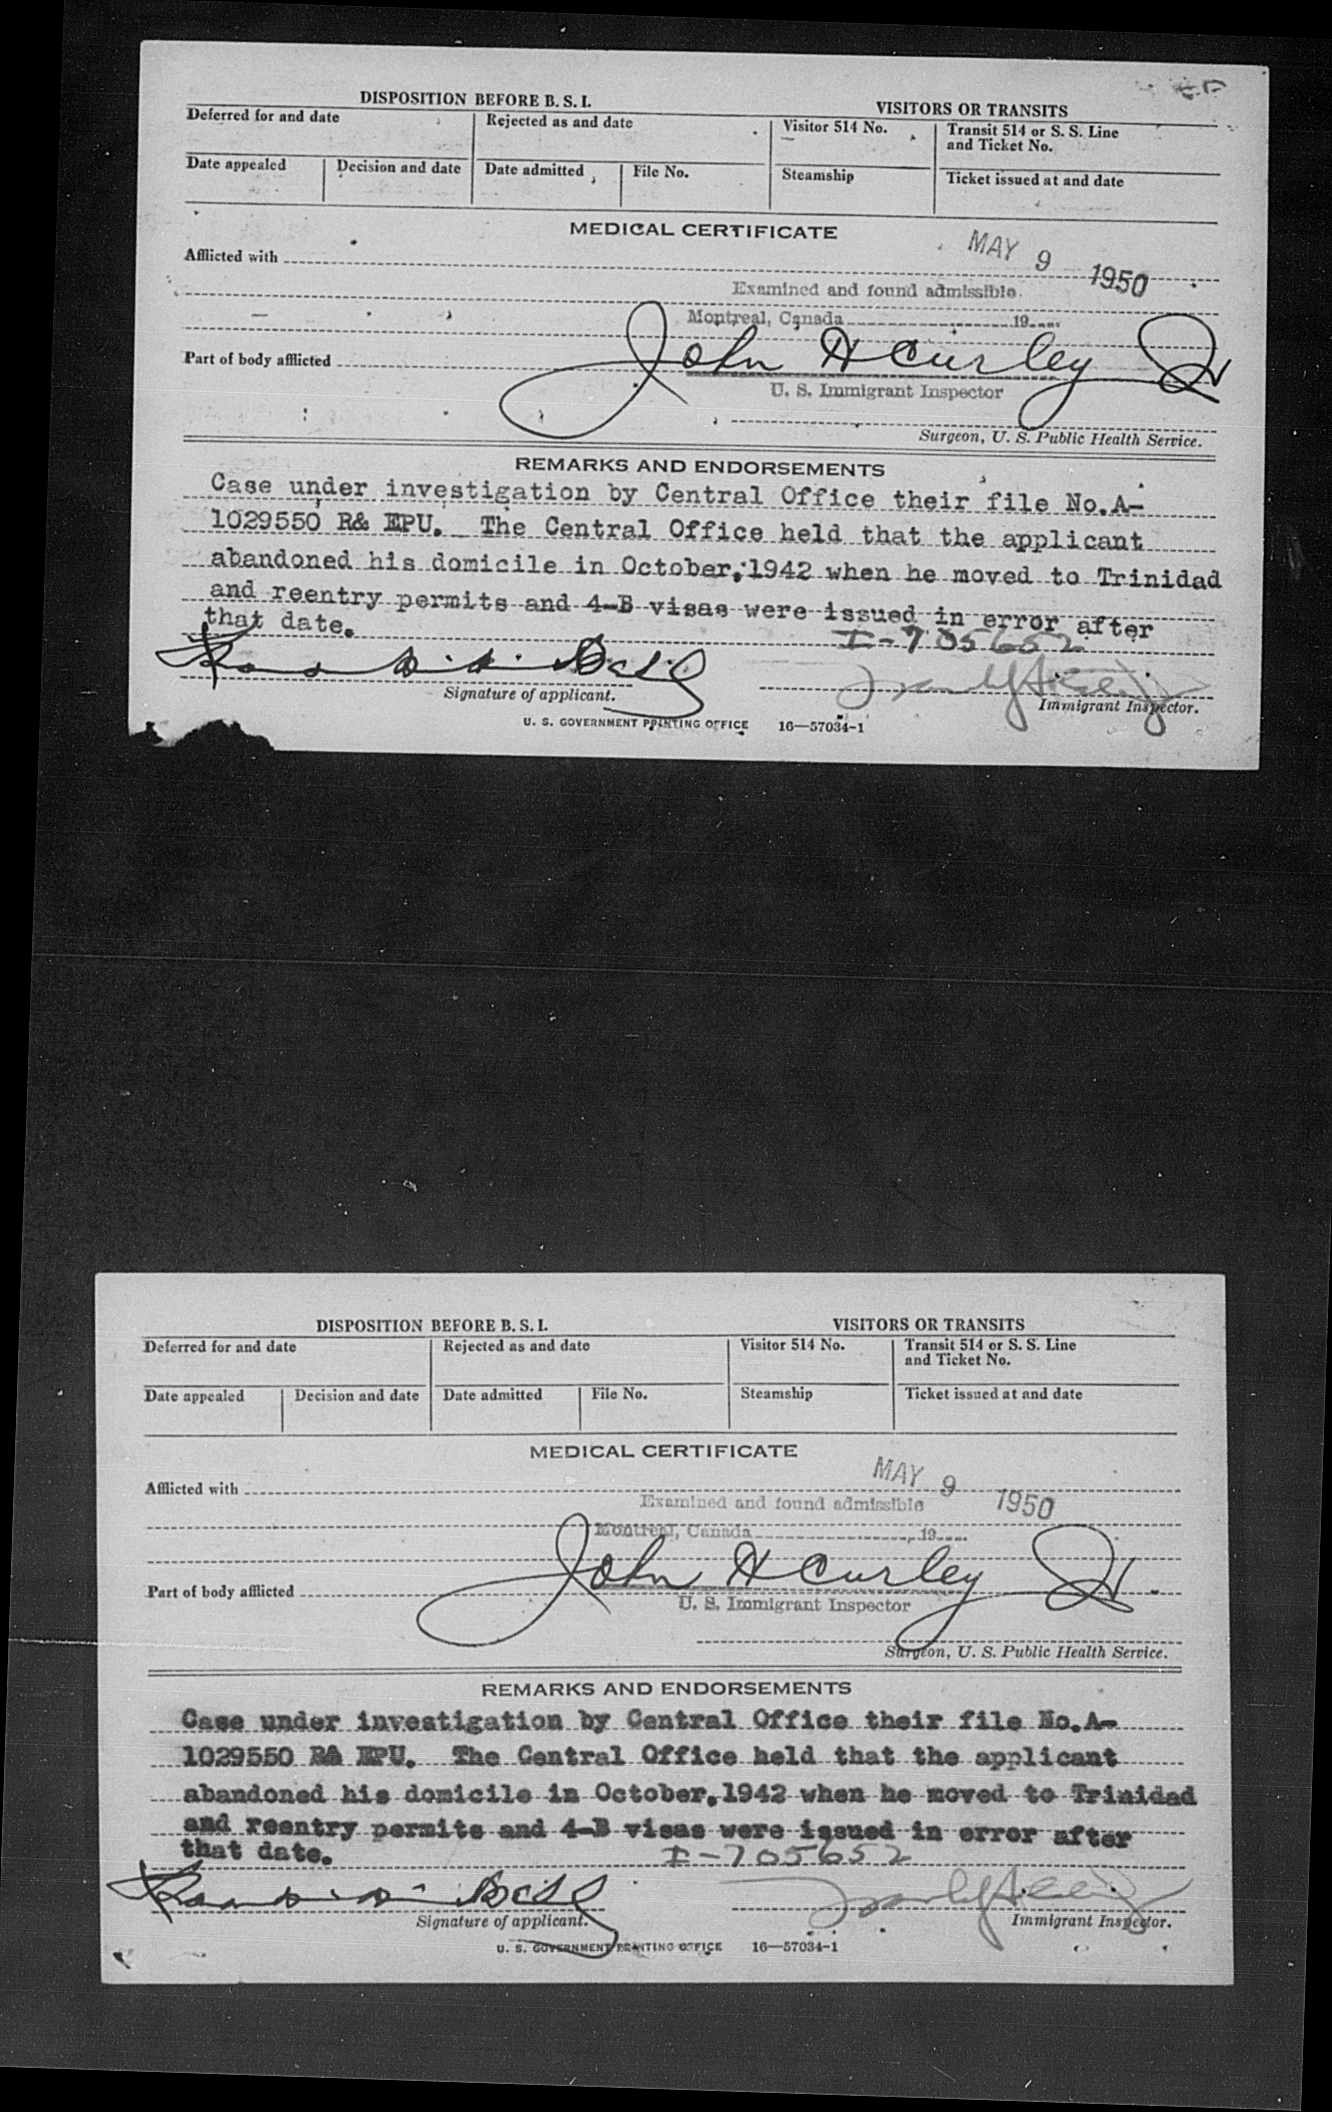 DISPOSITION BEFORE B. S. I.
VISITORS OR TRANSITS
Deferred for and date
Rejected as and date
Visitor 514 No.
Transit 514 or S. S. Line
and Ticket No.
Date appealed
Decision and date
Date admitted
File No.
Steamship
Ticket issued at and date
MEDICAL CERTIFICATE
MAY 9 1950
Afflicted with
Examined and found admissible.
Montreal, Canada 19
John H Curley Jr
Part of body afflicted
U. S. Immigrant Inspector
Surgeon, U. S. Public Health Service.
REMARKS AND ENDORSEMENTS
Case under investigation by Central Office their file No.A-
1029550 R& EPU. The Central Office held that the applicant
abandoned his domicile in October,1942 when he moved to Trinidad
and reentry permits and 4-B visas were issued in error after
that date.
I-705652
Signature of applicant.
Immigrant Inspector.
U. S. GOVERNMENT PRINTING OFFICE 16—57034-1
DISPOSITION BEFORE B. S. I.
VISITORS OR TRANSITS
Deferred for and date
Rejected as and date
Visitor 514 No.
Transit 514 or S. S. Line
and Ticket No.
Date appealed
Decision and date
Date admitted
File No.
Steamship
Ticket issued at and date
MEDICAL CERTIFICATE
MAY 9 1950
Afflicted with
Examined and found admissible
Montreal, Canada 19
John H Curley Jr
Part of body afflicted
U. S. Immigrant Inspector
Surgeon, U. S. Public Health Service.
REMARKS AND ENDORSEMENTS
Case under investigation by Central Office their file No.A-
1029550 R& EPU. The Central Office held that the applicant
abandoned his domicile in October,1942 when he moved to Trinidad
and reentry permits and 4-B visas were issued in error after
that date.
I-705652
Signature of applicant.
Immigrant Inspector.
U. S. GOVERNMENT PRINTING OFFICE 16—57034-1